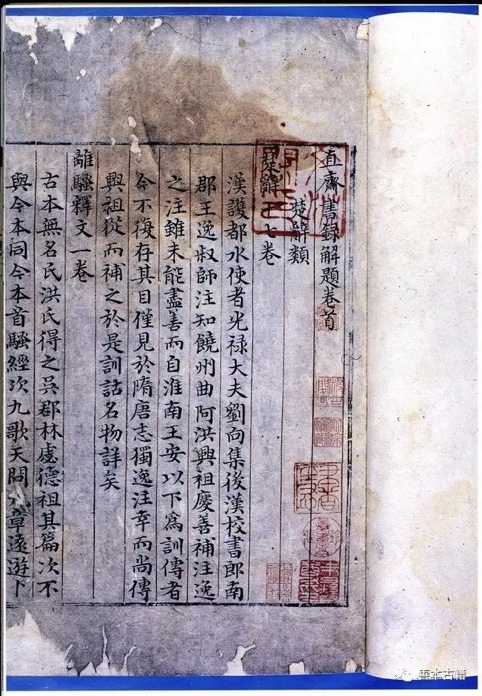 直齋書錄解題卷首
楚辭類
楚辭十七卷
漢護都水使者光祿大夫劉向集後漢校書郎南
郡王逸叔師注知饒州曲阿洪興祖慶善補注逸
之注雖未能盡善而自淮南王安以下爲訓傳者
今不復存其目僅見於隋唐志獨逸注幸而尚傳
興祖從而補之於是訓詁名物詳矣
離騷釋文一卷
古本無名氏洪氏得之吳郡林虙德祖其篇次不
與今本同今本首騷經次九歌天問九章遠遊卜
雲本古籍